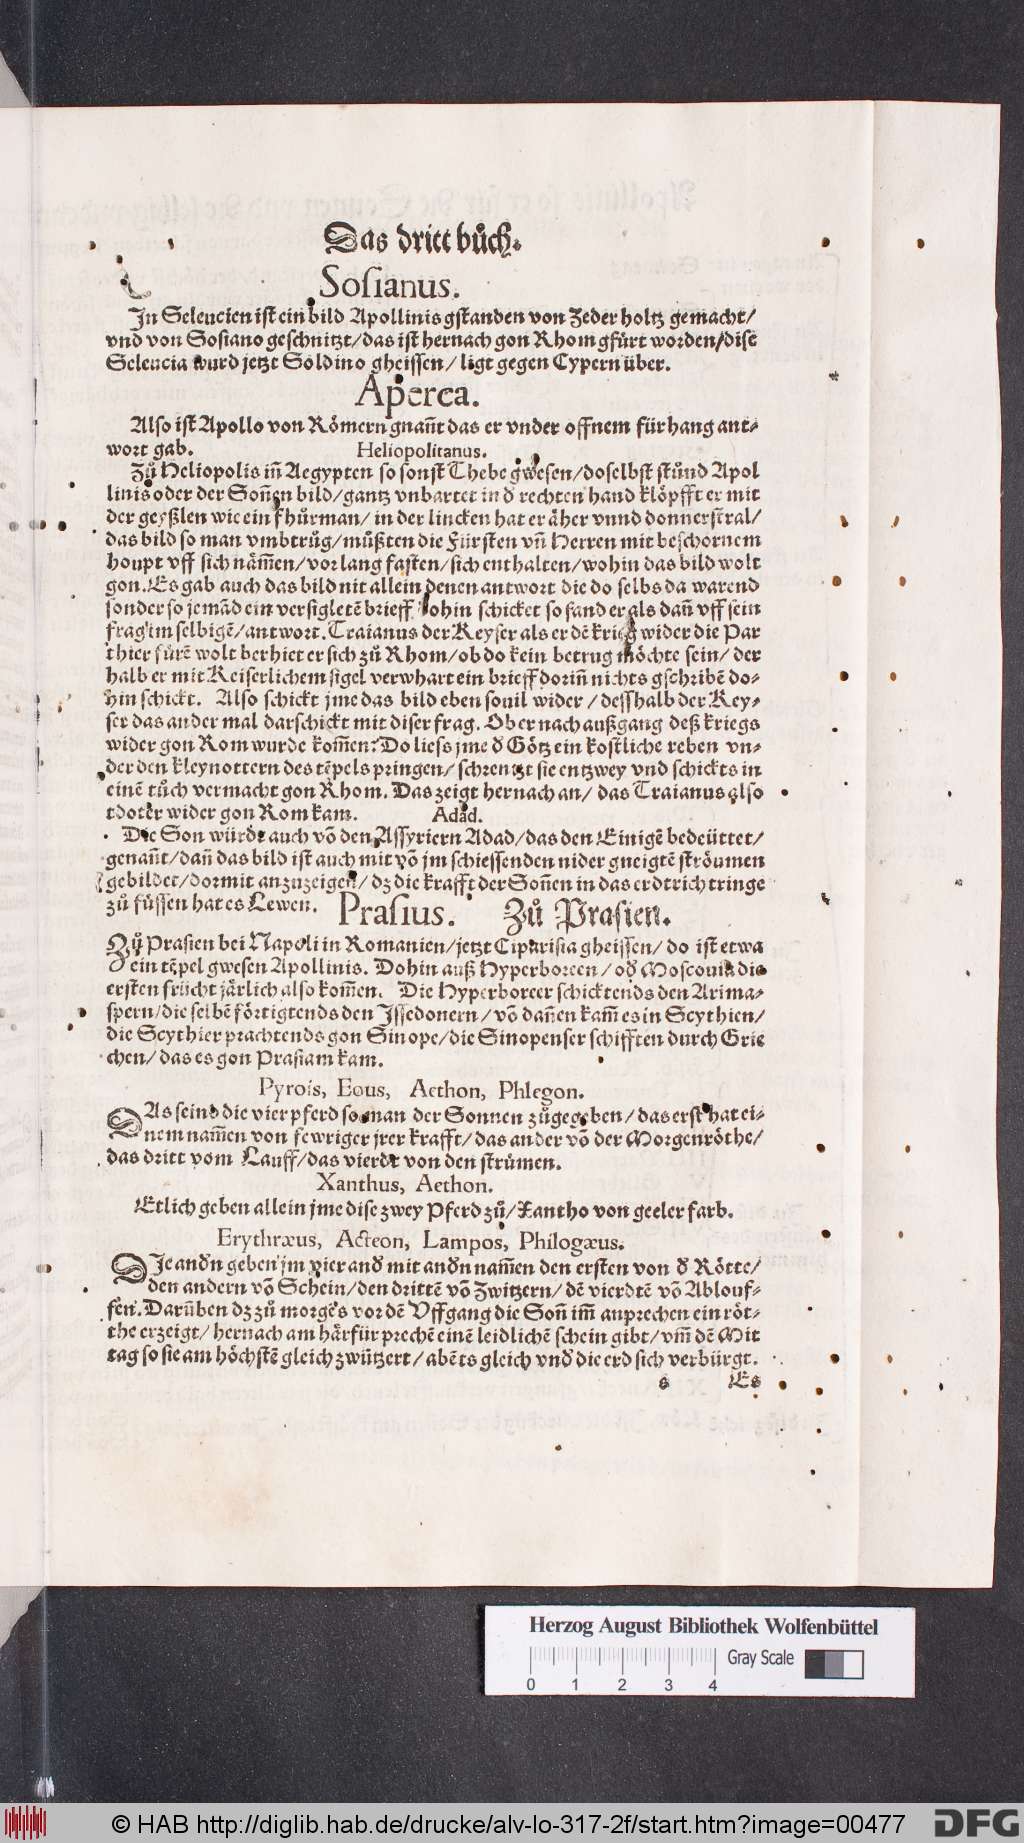 Das dritt bůch.
Sosianus.
In Seleucien ist ein bild Apollinis gstanden von Zeder holtz gemacht/
vnd von Sosiano geschnitzt/das ist hernach gon Rhom gfürt worden/dise
Seleucia wurd jetzt Soldino gheissen/ ligt gegen Cypern über.
Aperea.
Also ist Apollo von Römern gnañt das er vnder offnem fürhang ant-
wort gab. Heliopolitanus.
Zů Heliopolis iñ Aegypten so sonst Thebe gwesen/doselbst stůnd Apol
linis oder der Soñen bild/gantz vnbartet in d̕ rechten hand klöpfft er mit
der geyßlen wie ein fhůrman/ in der lincken hat er äher vnnd donnerstral/
das bild so man vmbtrůg/můßten die Fürsten vñ Herren mit beschornem
houpt vff sich näm̃en/vor lang fasten/sich enthalten/wohin das bild wolt
gon. Es gab auch das bild nit allein denen antwort die do selbs da warend
sonder so jemãd ein versigletẽ brieff dohin schicket so fand er als dañ vff sein
frag im selbigẽ/antwort. Traianus der Keyser als er dẽ krieg wider die Par
thier fürẽ wolt berhiet er sich zů Rhom/ob do kein betrug möchte sein/ der
halb er mit Keiserlichem sigel verwhart ein brieff doriñ nichts gschribẽ do-
hin schickt. Also schickt jme das bild eben souil wider / desshalb der Key-
ser das ander mal darschickt mit diser frag. Ob er nach außgang deß kriegs
wider gon Rom wurde kom̃en? Do liess jme d̕ Götz ein kostliche reben vn-
der den kleynottern des tẽpels pringen/ schrentzt sie entzwey vnd schickts in
einẽ tůch vermacht gon Rhom. Das zeigt hernach an/ das Traianus also
tdoter wider gon Rom kam. Adad.
Die Son würdt auch võ den Assyriern Adad/das den Einigẽ bedeüttet/
genañt/dañ das bild ist auch mit võ jm schiessenden nider gneigtẽ ströumen
gebildet/dormit anzuzeigen/ dz die krafft der Soñen in das erdtrich tringe
zů füssen hat es Lewen. Prasius. Zů Prasien.
Zů Prasien bei Napoli in Romanien/jetzt Ciparisia gheissen/ do ist etwa
ein tẽpel gwesen Apollinis. Dohin auß Hyperboreen/ od̕ Moscouia die
ersten frücht järlich also kom̃en. Die Hyperboreer schicktends den Arima-
spern/die selbẽ förtigtends den Issedonern/ võ dañen kam̃ es in Scythien/
die Scythier prachtends gon Sinope/die Sinopenser schifften durch Grie
chen/ das es gon Prasiam kam.
Pyrois, Eous, Aethon, Phlegon.
DAs seind die vier pferd so man der Sonnen zůgegeben/das erst hat ei-
nem nam̃en von fewriger jrer krafft/das ander võ der Morgenröthe/
das dritt vom Lauff/das vierdt von den strůmen.
Xanthus, Aethon.
Etlich geben allein jme dise zwey Pferd zů/Xantho von geeler farb.
Erythræus, Acteon, Lampos, Philogæus.
DIe and̕n geben jm vier and̕ mit and̕n nam̃en den ersten von d̕ Rötte/
den andern võ Schein/den drittẽ võ Zwitzern/ dẽ vierdtẽ võ Ablouf-
fen. Darũben dz zů morgẽs vor dẽ Vffgang die Soñ im̃ anprechen ein röt-
the erzeigt/hernach am härfür prechẽ einẽ leidlichẽ schein gibt/vm̃ dẽ Mit
tag so sie am höchstẽ gleich zwützert/abẽts gleich vnd̕ die erd sich verbürgt.
s Es
Herzog August Bibliothek Wolfenbüttel
0 1 2 3 4 Gray Scale
© HAB http://diglib.hab.de/drucke/alv-lo-317-2f/start.htm?image=00477 DFG